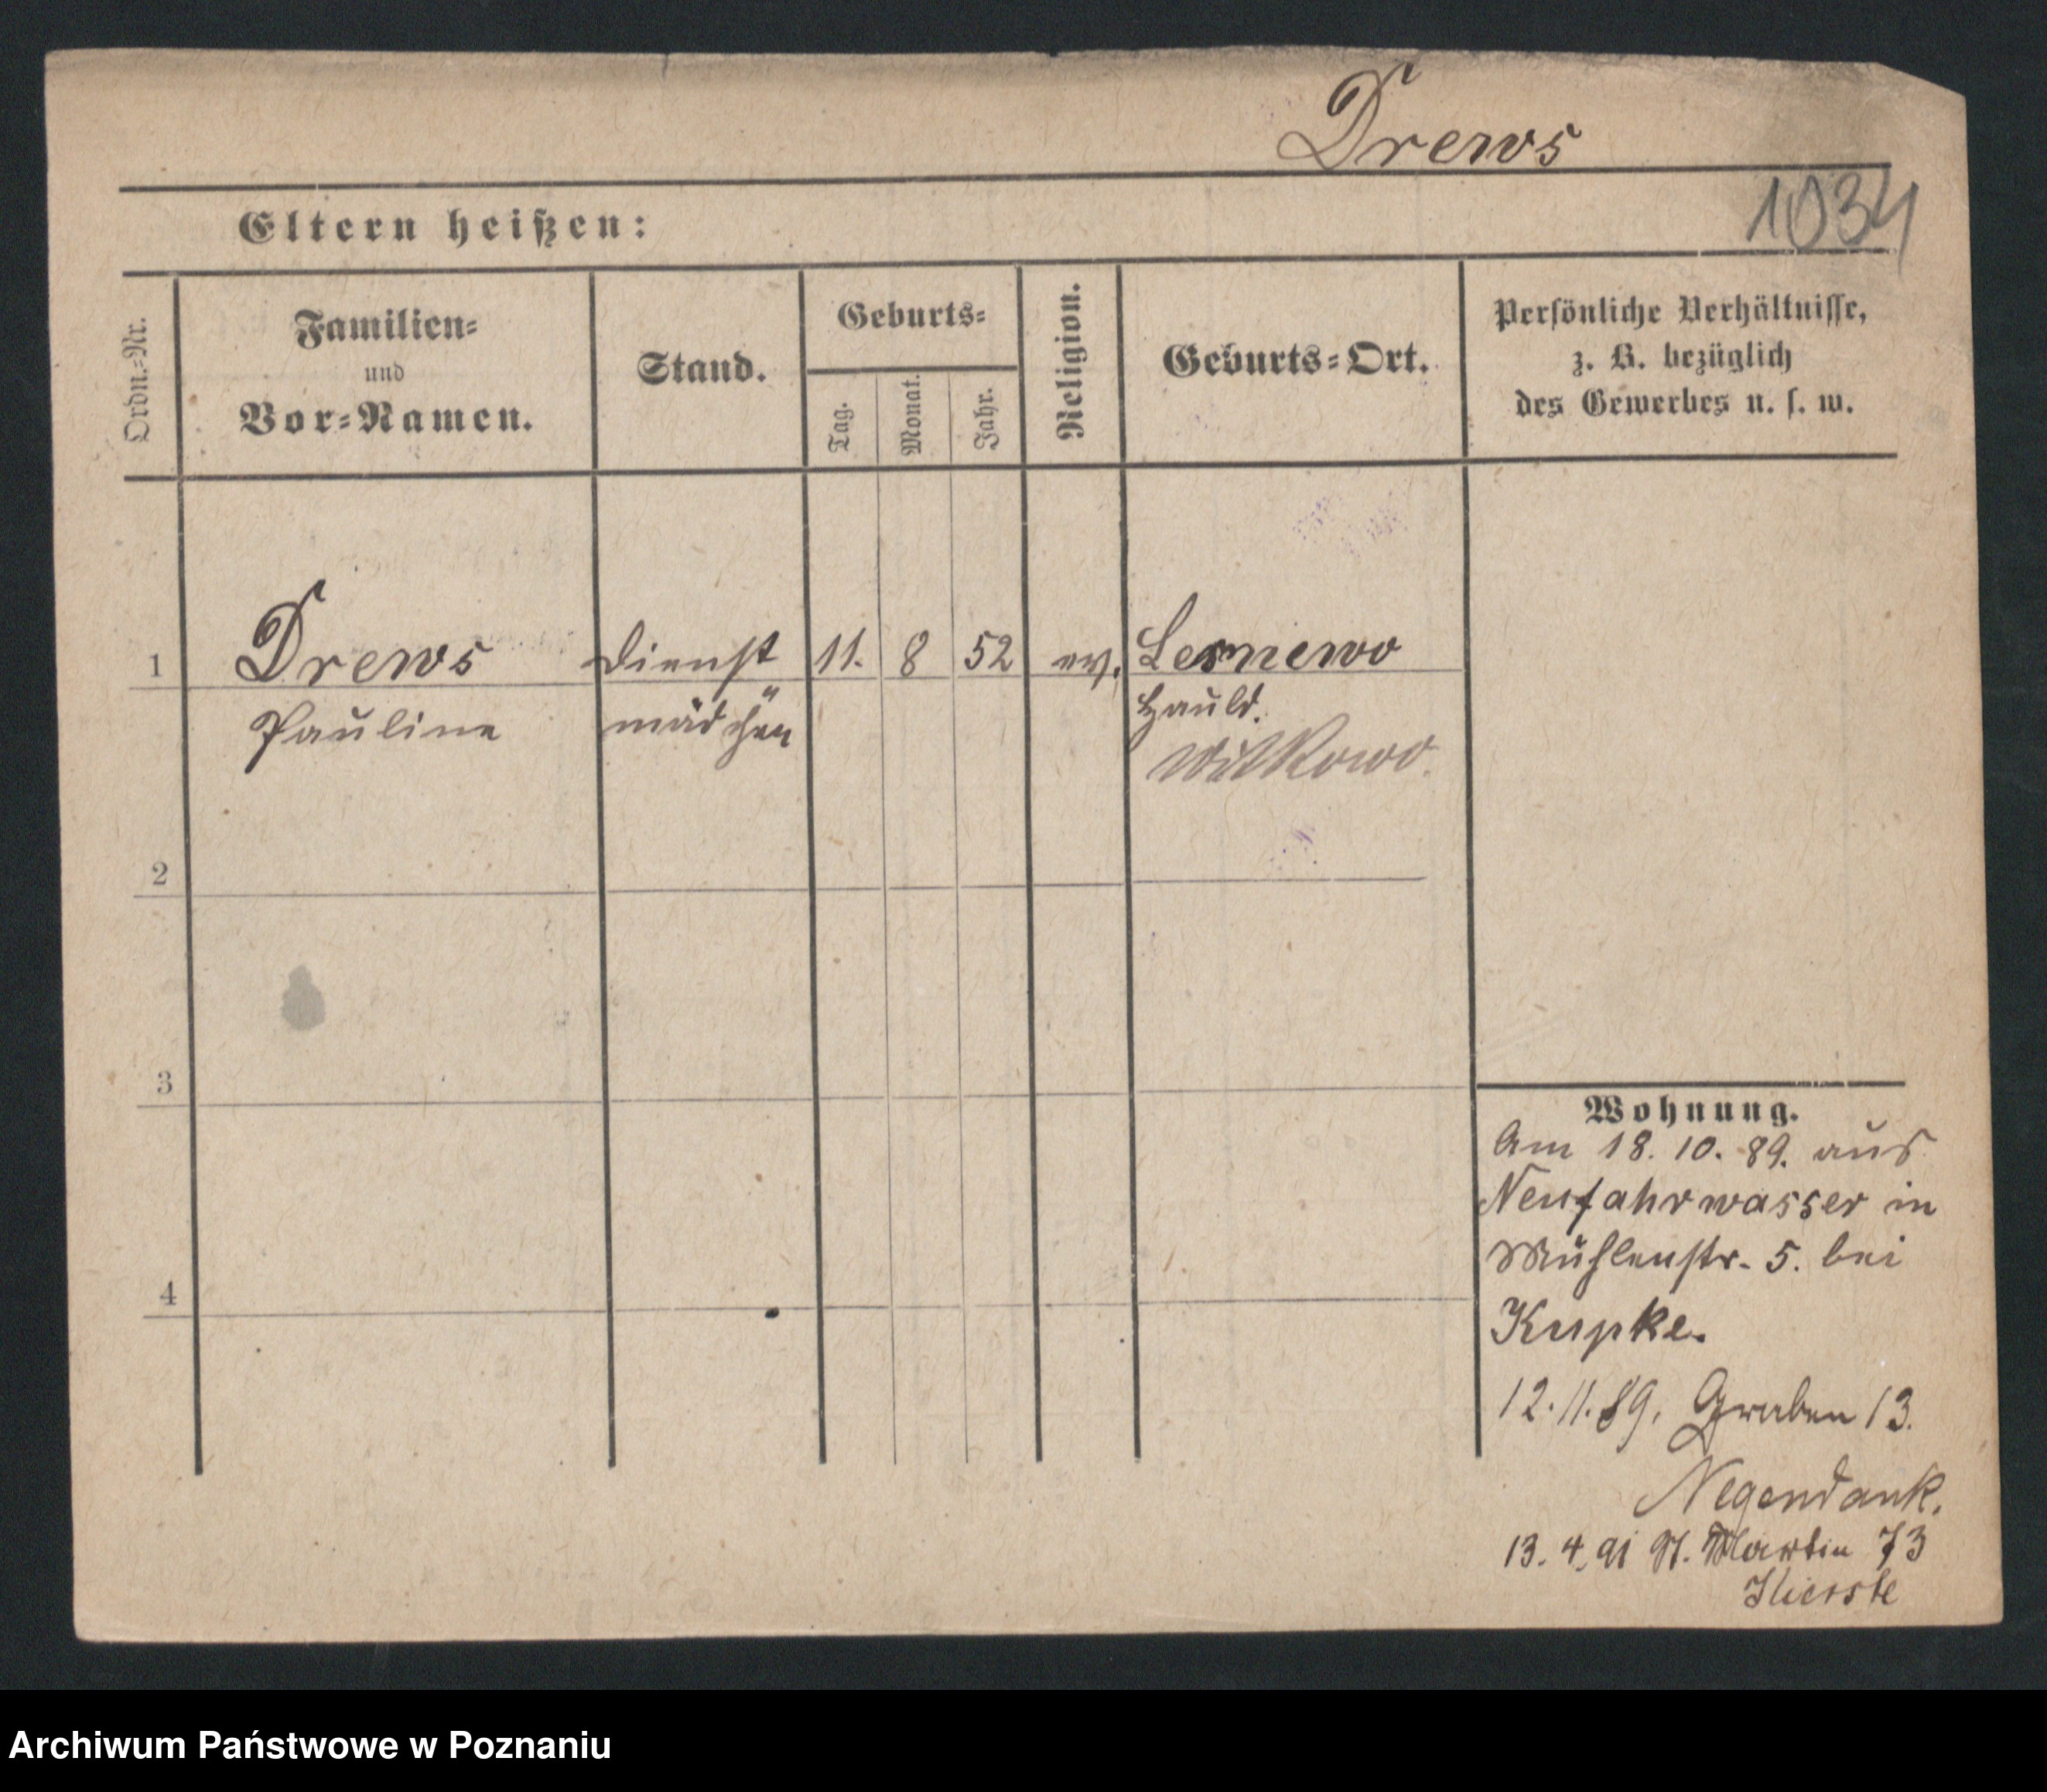 Drews
1034
Eltern heißen:
Ordn.-Nr.
Familien-
und
Vor-Namen.
Stand.
Geburts-
Tag.
Monat.
Jahr.
Religion.
Geburts-Ort.
Persönliche Verhältnisse,
z. B. bezüglich
des Gewerbes u. s. w.
1 Drews Dienst 11. 8 52 ev.
Pauline mädchen Hauld.
Witkowo.
2
3
4
Wohnung.
Am 18. 10. 89. aus
Neufahrwasser in
Mühlenstr. 5. bei
Kupke.
12. 11. 89. Graben 13.
Negendank.
13. 4. 91 St. Martin 73
Archiwum Państwowe w Poznaniu